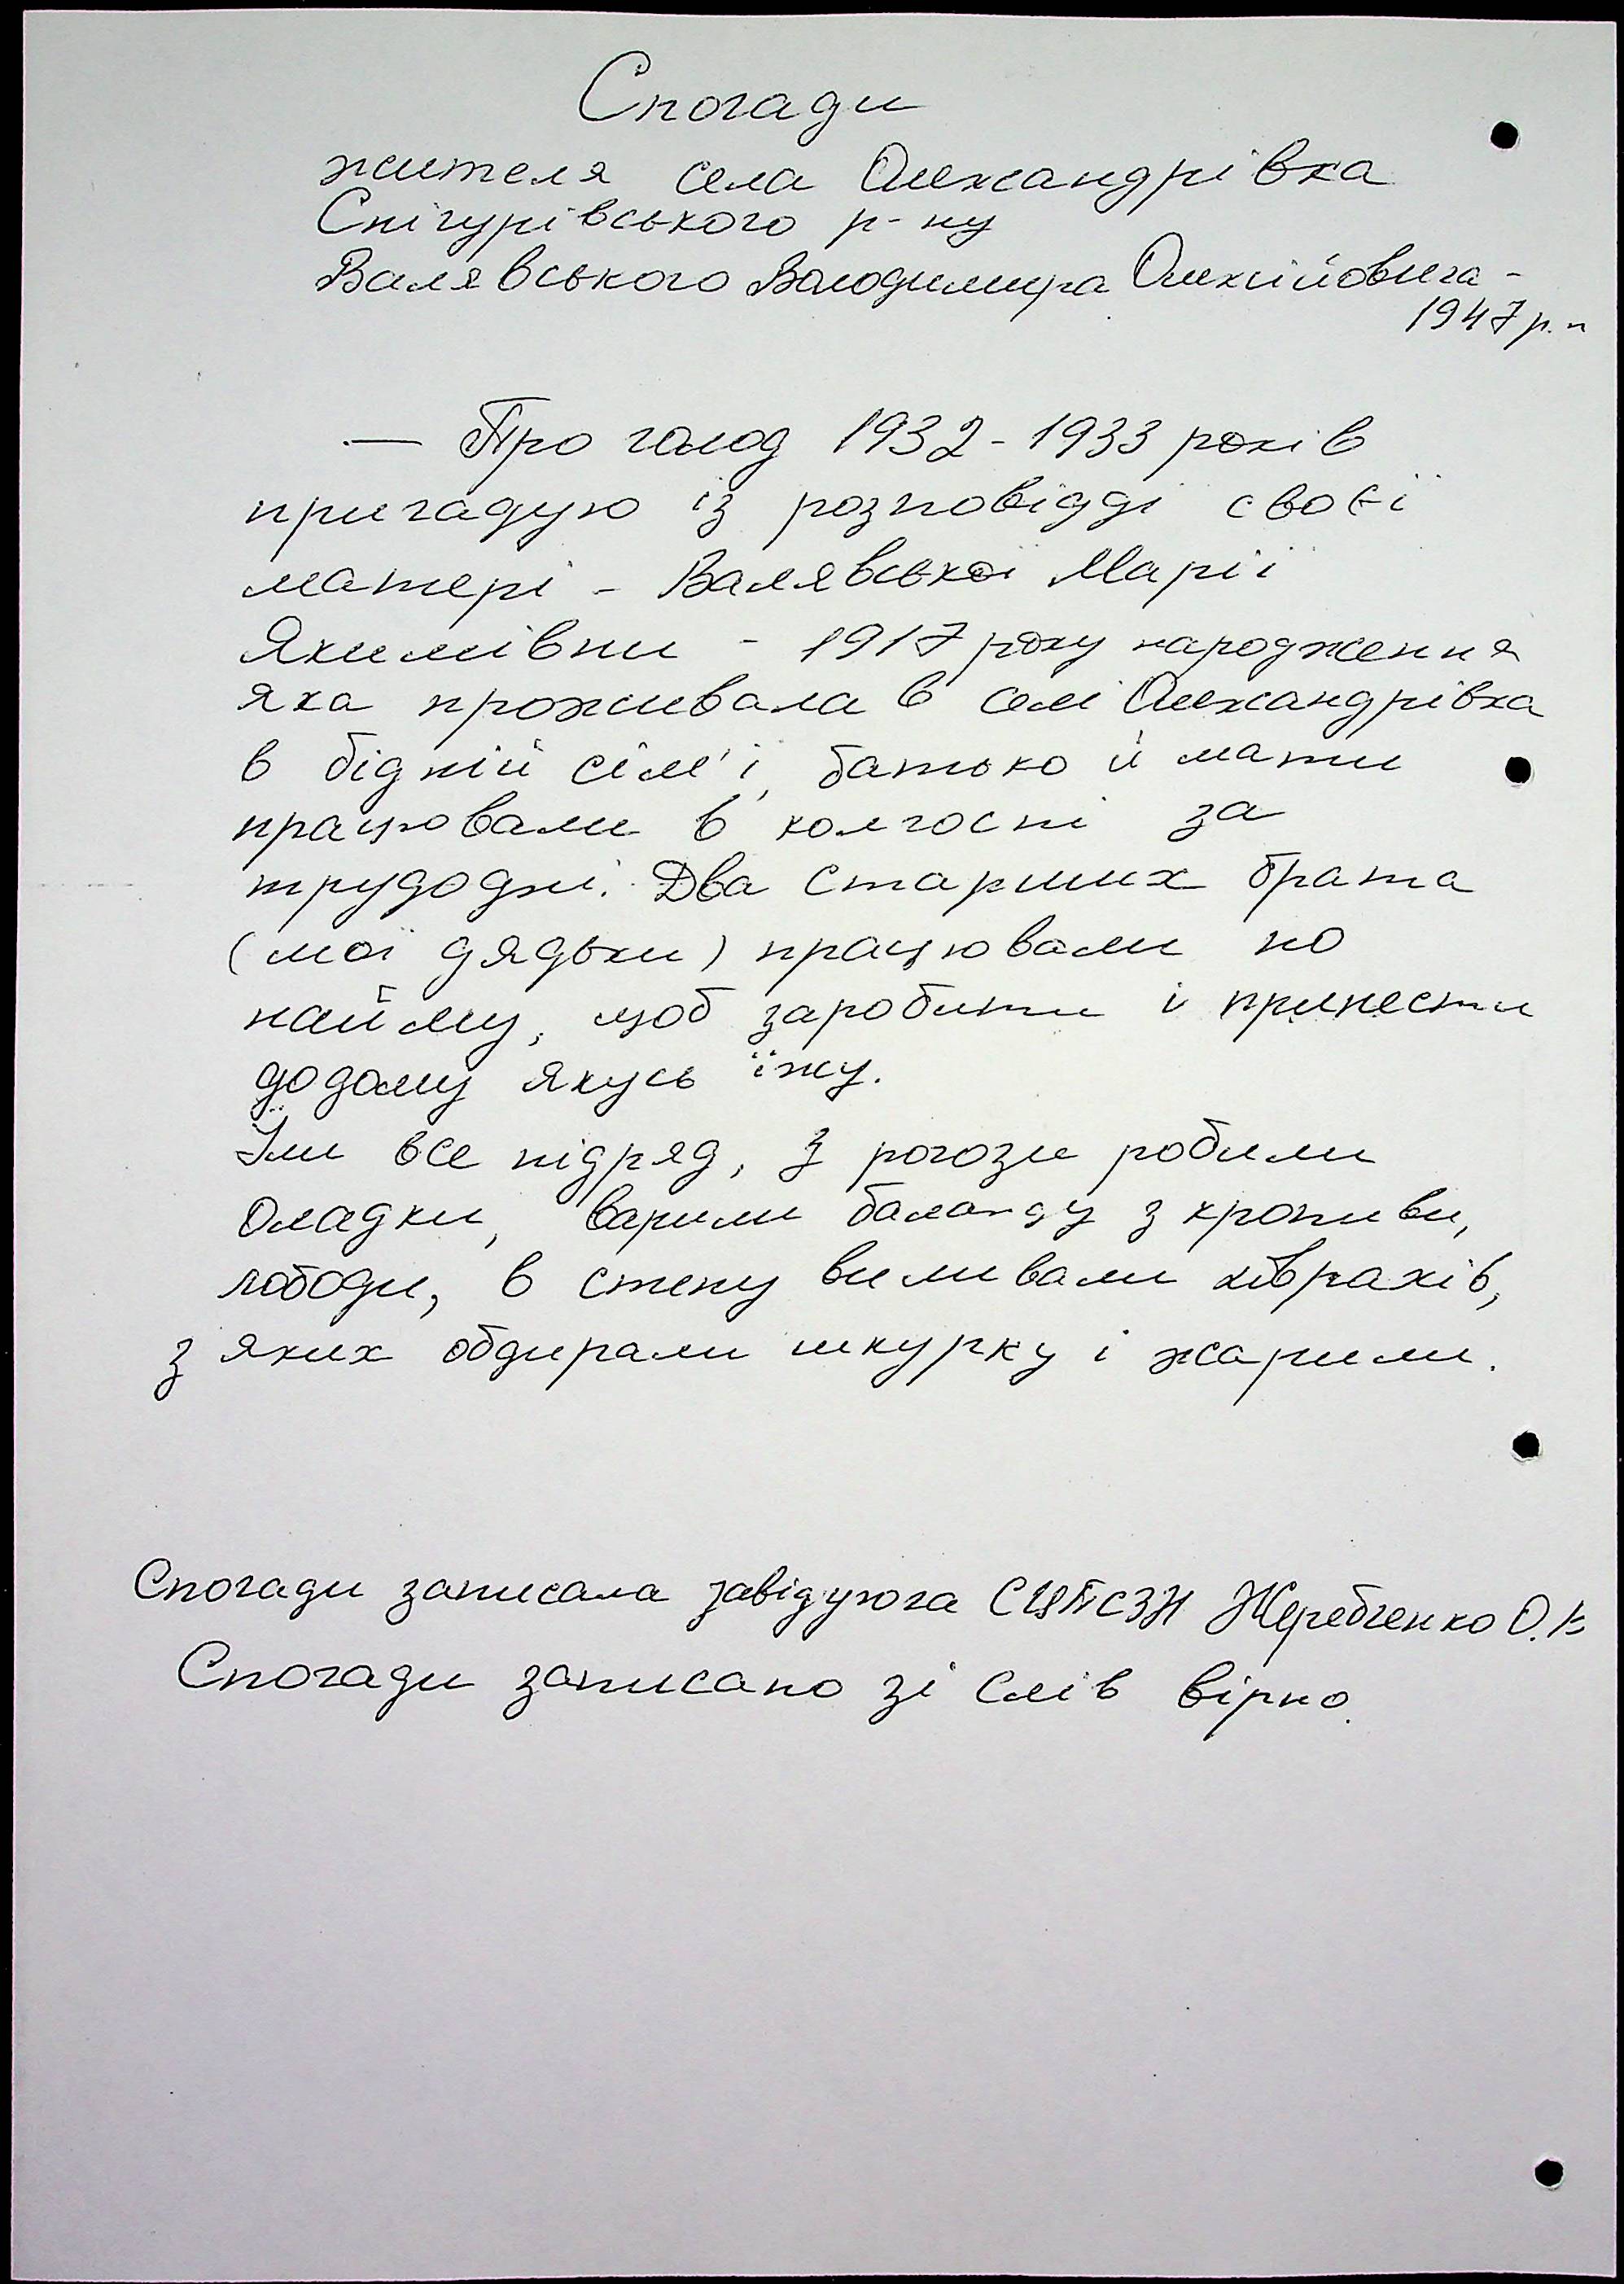 Спогади
жителя села Олександрівка
Снігурівського р-ну
Валявського Володимира Олексійовича -
1947 р.н
— Про голод 1932-1933 років
пригадую із розповідді своєї
матері - Валявської Марії
Якимівни - 1917 року народження
яка проживала в селі Олександрівка
в бідній сім'ї, батько й мати
працювали в колгоспі за
трудодні. Два старших брата
(мої дядьки) працювали по
найму, щоб заробити і принести
додому якусь їжу.
Їли все підряд, з рогози робили
оладки, варили баланду з кропиви,
лободи, в степу виливали ховрахів,
з яких обдирали шкурку і жарили.
Спогади записала завідуюча СЦПСЗН Жеребченко О.В
Спогади записано зі слів вірно.